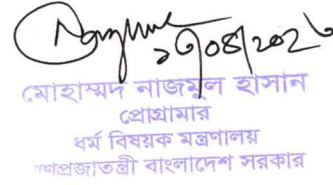 ১৩/০৪/২০২৬
মোহাম্মদ নাজমুল হাসান
প্রোগ্রামার
ধর্ম বিষয়ক মন্ত্রণালয়
গণপ্রজাতন্ত্রী বাংলাদেশ সরকার